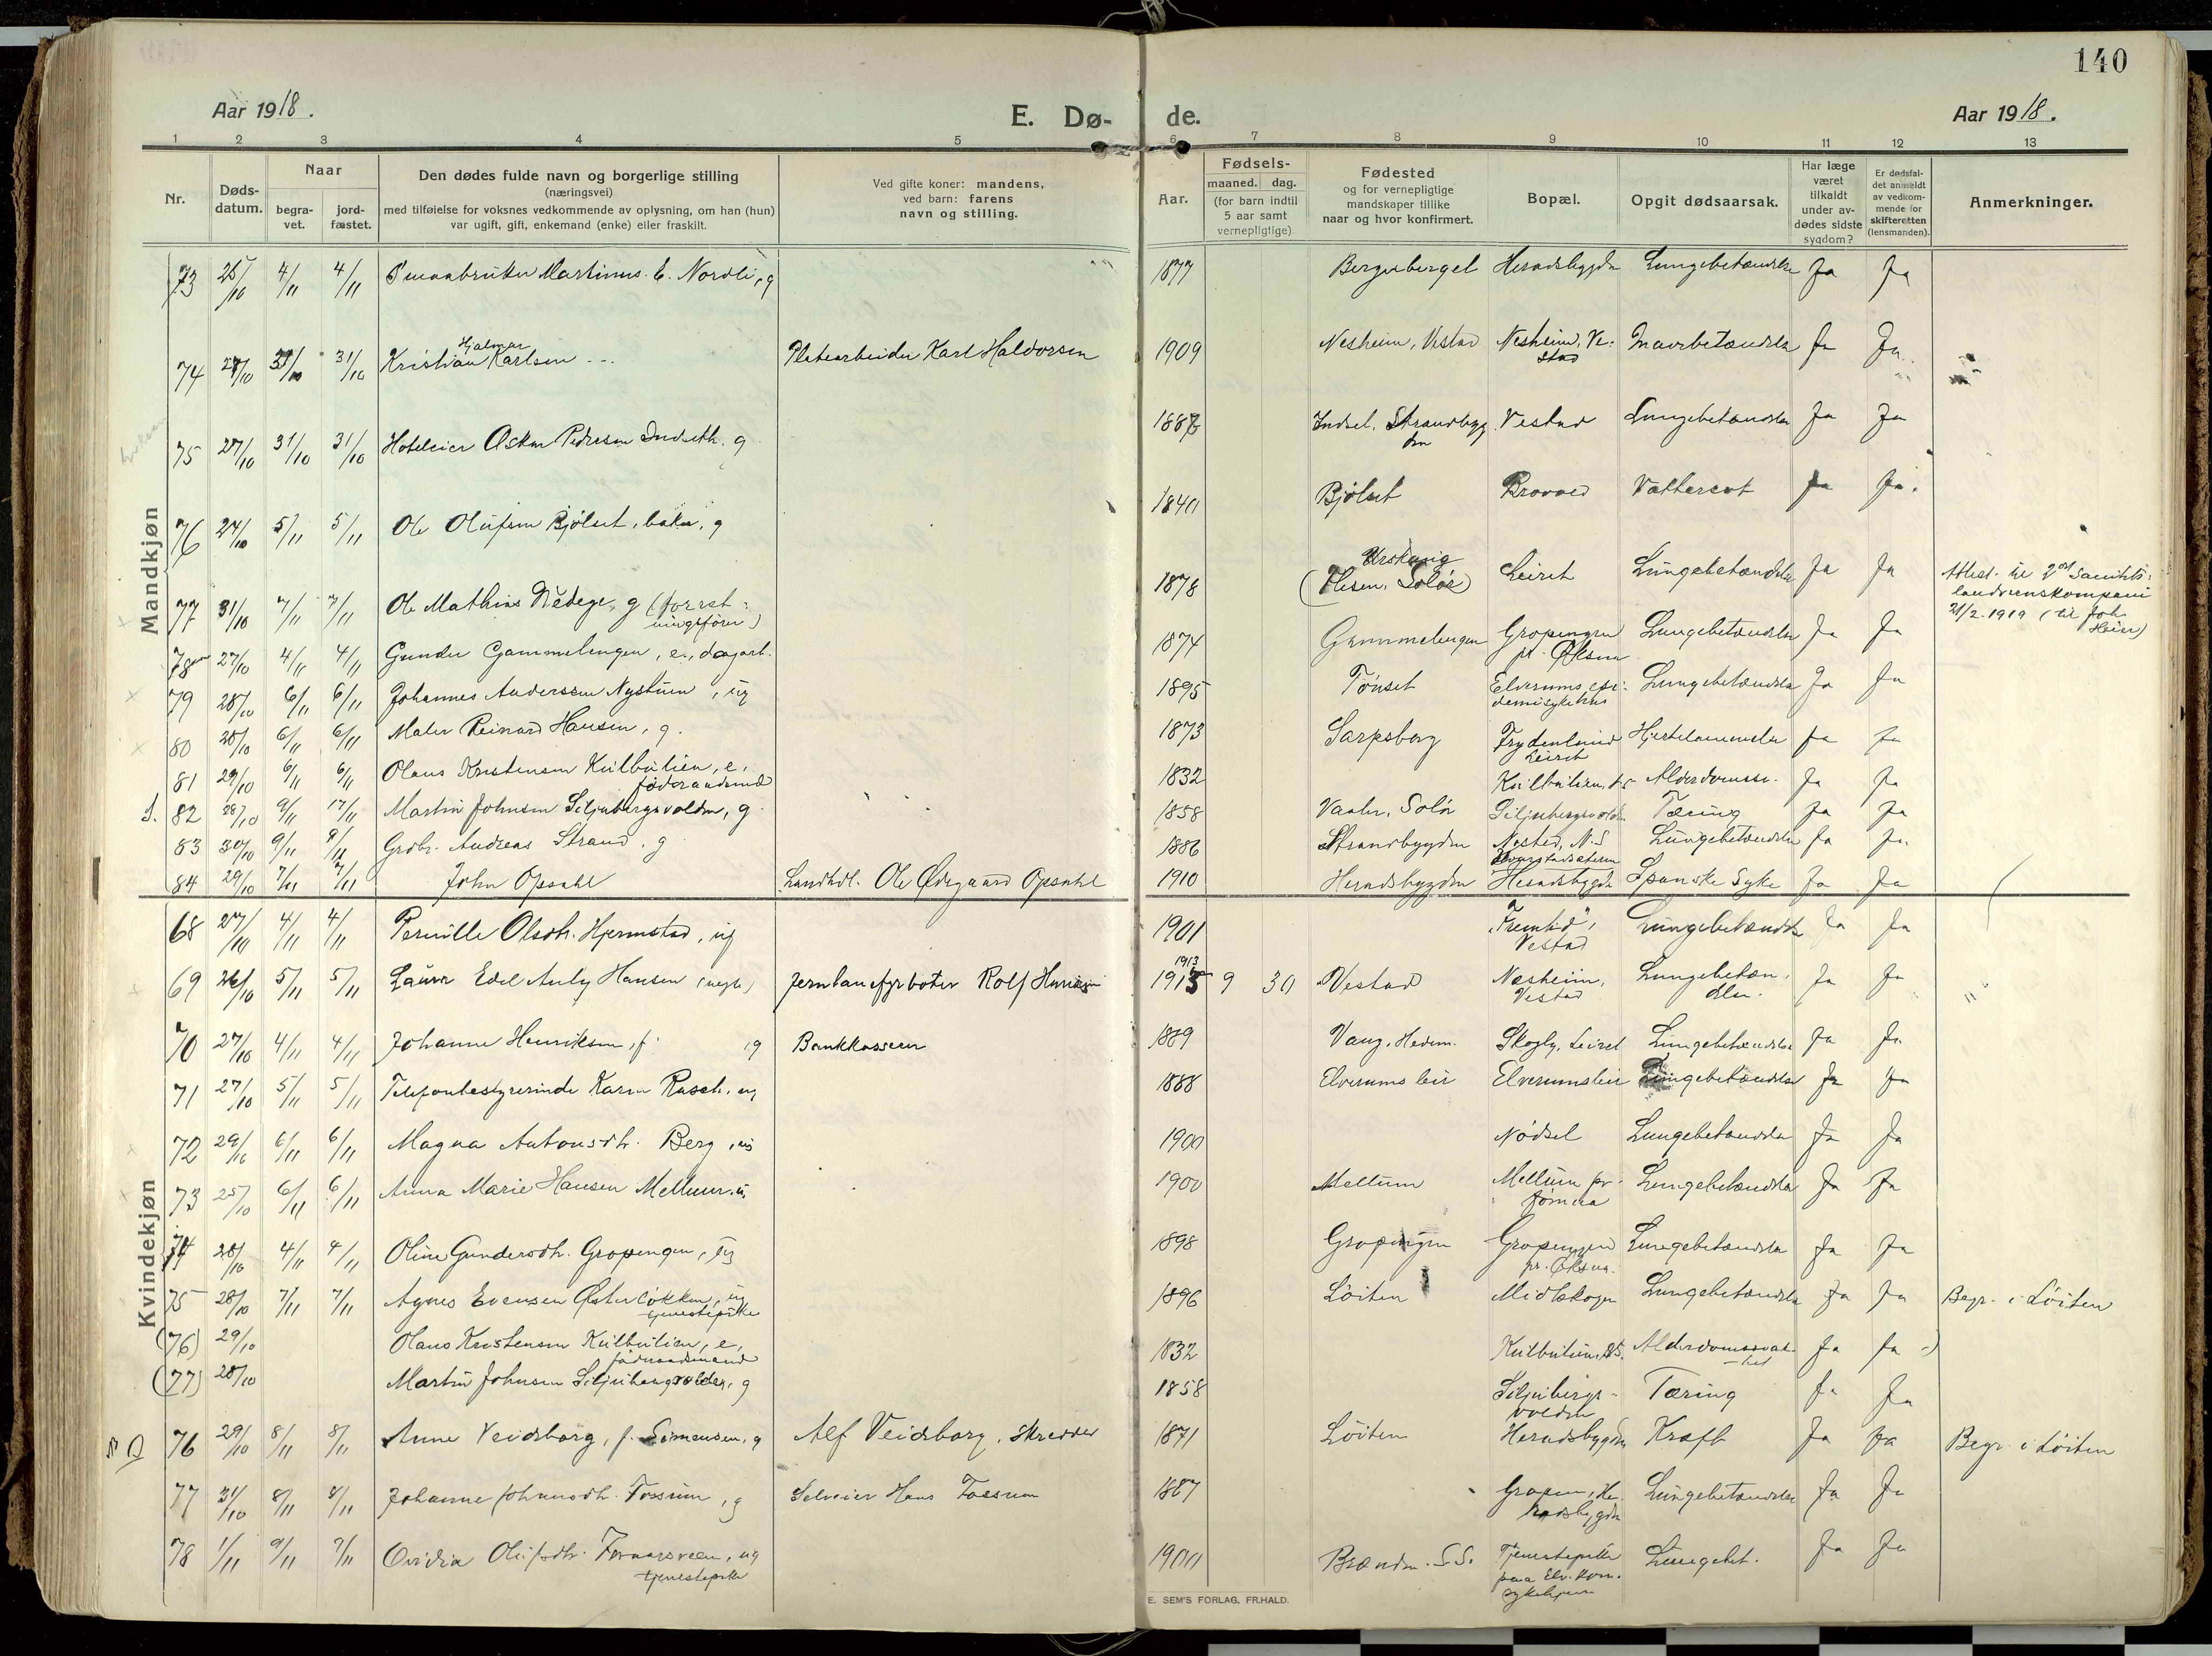 140
Aar 1918.
E. Dø-
de.
Aar 1918.
1 2 3 4 5 6 7 8 9 10 11 12 13
Nr.
Døds-
datum.
Naar
begra-
vet.
jord-
fæstet.
Den dødes fulde navn og borgerlige stilling
(næringsvei)
med tilføielse for voksnes vedkommende av oplysning, om han (hun)
var ugift, gift, enkemand (enke) eller fraskilt.
Ved gifte koner: mandens,
ved barn: farens
navn og stilling.
Aar.
Fødsels-
maaned. dag.
(for barn indtil
5 aar samt
vernepligtige).
Fødested
og for vernepligtige
mandskaper tillike
naar og hvor konfirmert.
Bopæl.
Opgit dødsaarsak.
Har læge
været
tilkaldt
under av-
dødes sidste
sygdom?
Er dødsfal-
det anmeldt
av vedkom-
mende for
skifteretten
(lensmanden).
Anmerkninger.
Mandkjøn
73 25/10 4/11 4/11 Smaabruker Martinus E. Nordli, g 1877 Bergeberget Heradsbygdn Lungebetændelse Ja Ja
Hjalmar
74 31/10 31/10 Kristian Karlsen Platearbeider Karl Haldorsen 1909 Nesheim, Vestad Nesheim, Ve-
stad Ja Ja
75 27/10 31/10 31/10 Hoteleier Oskar Pedersen Indseth, g Indset, Strandbyg
dn Vestad Lungebetændelse Ja Ja
76 24/10 5/11 5/11 Ole Olufsen Bjølset, g 1840 Bjølset Vattersot Ja Ja
77 31/10 7/11 7/11 Ole Mathias g (forret-
ningsfører) 1878 Urskaug
Solør) Leiret Lungebetændelse Ja Ja Attest til
landvernskompani
21/2 1919
78 27/10 4/11 4/11 Gunder Gammelengen, e., dagarb. 1874 Gammelengen Gropengen
pr. Øksna Lungebetændelse Ja Ja
79 28/10 6/11 6/11 Johannes Anderssen Nystuen, ug 1895 Tønset Elverums epi-
demisykehus Lungebetændelse Ja Ja
80 28/10 6/11 6/11 Maler Reinard Hansen, g. 1873 Sarpsborg Frydenlund
Leiret Hjertelammelse Ja Ja
81 29/10 6/11 6/11 Olaus Kristensen Kulbulien, e.
føderaadsmand 1832 Kulbulien, Alderdomssv. Ja Ja
82 28/10 9/11 17/11 Martin Johnsen Siljubergsvolden, g 1858 Vaaler, Solør Siljubergsvolden Tæring Ja Ja
83 30/10 9/11 9/11 Grdbr. Andreas Strand, g 1886 Strandbygden N.S Lungebetændelse Ja Ja
84 29/10 7/11 7/11 John Opsahl Landhdl. Ole Ødegaard Opsahl 1910 Heradsbygden Heradsbygdn Spanske Syke Ja Ja
Kvindekjøn
68 27/10 4/11 4/11 Pernille Olsdtr. Hjermstad, ug 1901 "Fremtid",
Vestad Lungebetændelse Ja Ja
69 26/10 5/11 5/11 Laura Edel Hansen Jernbanefyrbøter Rolf Hansen 1913
1915 9 30 Vestad Nesheim,
Vestad Lungebetæn-
delse. Ja Ja
70 27/10 4/11 4/11 Johanne Henriksen, f. g Bankkasserer 1889 Vang, Hedem. Skogly, Leiret Lungebetændelse Ja Ja
71 27/10 5/11 5/11 Telefonbestyrerinde Karen Rasch, ug 1888 Elverums leir Elverumsleir Lungebetændelse Ja Ja
72 29/10 6/11 6/11 Magna Antonsdtr. Berg, ug 1900 Nødset Lungebetændelse Ja Ja
73 25/10 6/11 6/11 Anna Marie Hansen Mellum, ug 1900 Mellum Mellum pr.
Jømna Lungebetændelse Ja Ja
74 28/10 4/11 4/11 Oline Gundersdtr. Gropengen, ug 1898 Gropengen Gropengen
pr. Øksna. Lungebetændelse Ja Ja
75 28/10 7/11 7/11 Agnes Evensen Østerløkken, ug
tjenestepike 1896 Løiten Midtskogen Lungebetændelse Ja Ja Begr. i Løiten
(76) 29/10 Olaus Kristensen Kulbulien, e,
føderaadsmand 1832 Kulbulien, Alderdomssvak-
het Ja Ja
(77) 28/10 Martin Johnsen Siljubergsvolden, g 1858 Siljubergs-
volden Tæring Ja Ja
76 29/10 8/11 8/11 Anne Veidsborg, f. Simensen, g Alf Veidsborg, skredder 1871 Løiten Heradsbygden Kræft Ja Ja Begr. i Løiten
77 31/10 8/11 8/11 Johanne Johnsdtr. Fossum, g Selveier Hans Fossum 1867 Gropen, He-
radsbygdn Lungebetændelse Ja Ja
78 1/11 9/11 9/11 Ovidia Olufsdtr. ug
tjenestepike 1900 Brænden. S.S. Tjenestepike
paa Elv. kom.
sykehjem Lungebet. Ja Ja
E. SEM'S FORLAG, FR.HALD.